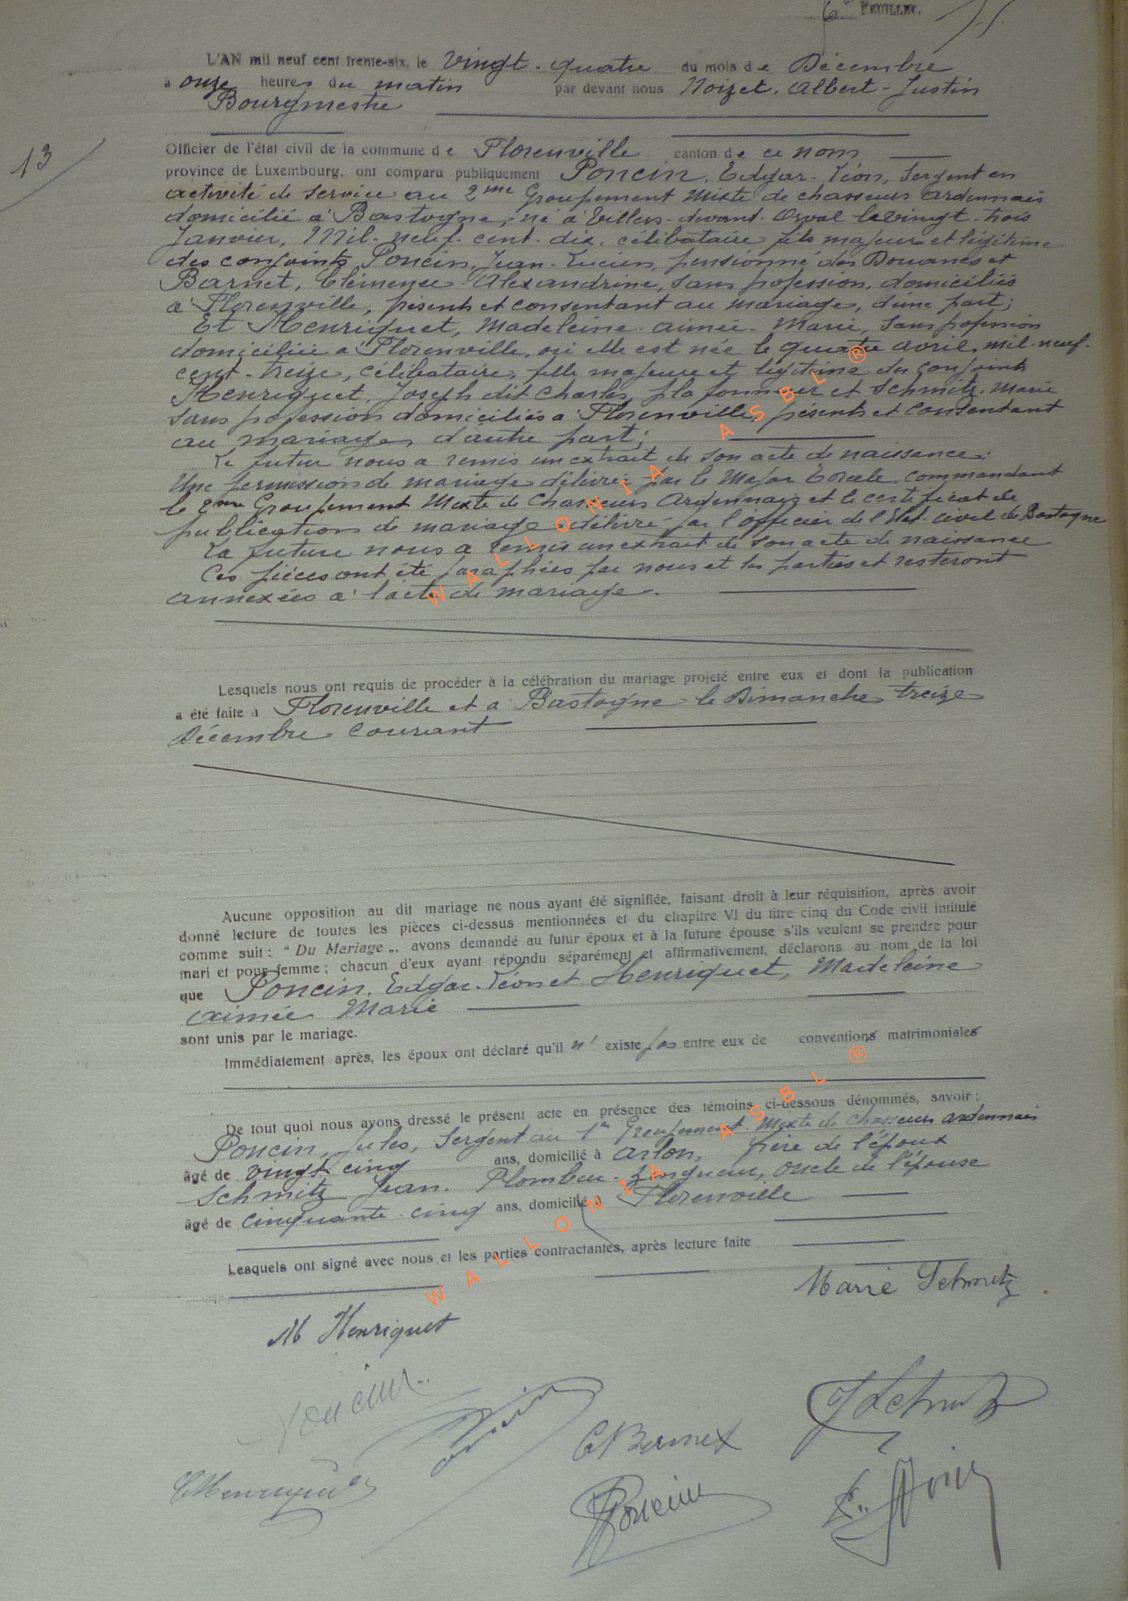 6e FEUILLET.
L'AN mil neuf cent trente-six, le Vingt-quatre du mois de Décembre
à onze heures du matin par devant nous Noizet, Albert-Justin
Bourgmestre
13
Officier de l'état civil de la commune de Florenville canton de ce nom
province de Luxembourg, ont comparu publiquement Poncin, Edgar-Léon, Sergent en
activité de service au 2me Groupement Mixte de chasseurs ardennais
domicilié à Bastogne, né à Villers-devant-Orval le vingt-trois
Janvier, Mil-neuf-cent-dix, célibataire fils majeur et légitime
des conjoints Poncin, Jean-Lucien, pensionné des Douanes et
Barnet, Clémence Alexandrine, sans profession, domiciliés
à Florenville, présents et consentant au mariage, d'une part;
Et Henriquet, Madeleine-aimée-Marie, sans profession
domiciliée à Florenville, où elle est née le quatre avril mil-neuf-
cent-treize, célibataire, fille majeure et légitime des conjoints
Henriquet, Joseph dit Charles, et Schmitz, Marie
sans profession domiciliés à Florenville, présents et consentant
au mariage, d'autre part;
Le futur nous a remis un extrait de son acte de naissance.
Une permission de mariage délivrée par le Major commandant
le 2me Groupement Mixte de Chasseurs Ardennais et le certificat de
publication de mariage délivré par l'officier de l'Etat-civil de Bastogne
La future nous a remis un extrait de son acte de naissance
Ces pièces ont été paraphées par nous et les parties et resteront
annexées à l'acte de mariage.
Lesquels nous ont requis de procéder à la célébration du mariage projeté entre eux et dont la publication
a été faite à Florenville et à Bastogne le Dimanche treize
Décembre courant
Aucune opposition au dit mariage ne nous ayant été signifiée, faisant droit à leur réquisition, après avoir
donné lecture de toutes les pièces ci-dessus mentionnées et du chapitre VI du titre cinq du Code civil intitulé
comme suit : " Du Mariage „, avons demandé au futur époux et à la future épouse s'ils veulent se prendre pour
mari et pour femme ; chacun d'eux ayant répondu séparément et affirmativement, déclarons au nom de la loi
que Poncin, Edgar-Léon et Henriquet, Madeleine
aimée Marie
sont unis par le mariage.
Immédiatement après, les époux ont déclaré qu'il n' existe pas entre eux de conventions matrimoniales
De tout quoi nous ayons dressé le présent acte en présence des témoins ci-dessous dénommés, savoir :
Poncin, Jules, Sergent au 1er Groupement Mixte de chasseurs ardennais
âgé de vingt cinq ans, domicilié à Arlon, frère de l'époux
Schmitz Jean, Plombier-Zingueur, oncle de l'épouse
âgé de cinquante-cinq ans, domicilié à Florenville
Lesquels ont signé avec nous et les parties contractantes, après lecture faite
Marie Schmitz
M Henriquet
Poncin
J Schmitz
C Barnet
C Henriquet
Poncin
WALLONIA ASBL ®
WALLONIA ASBL ®